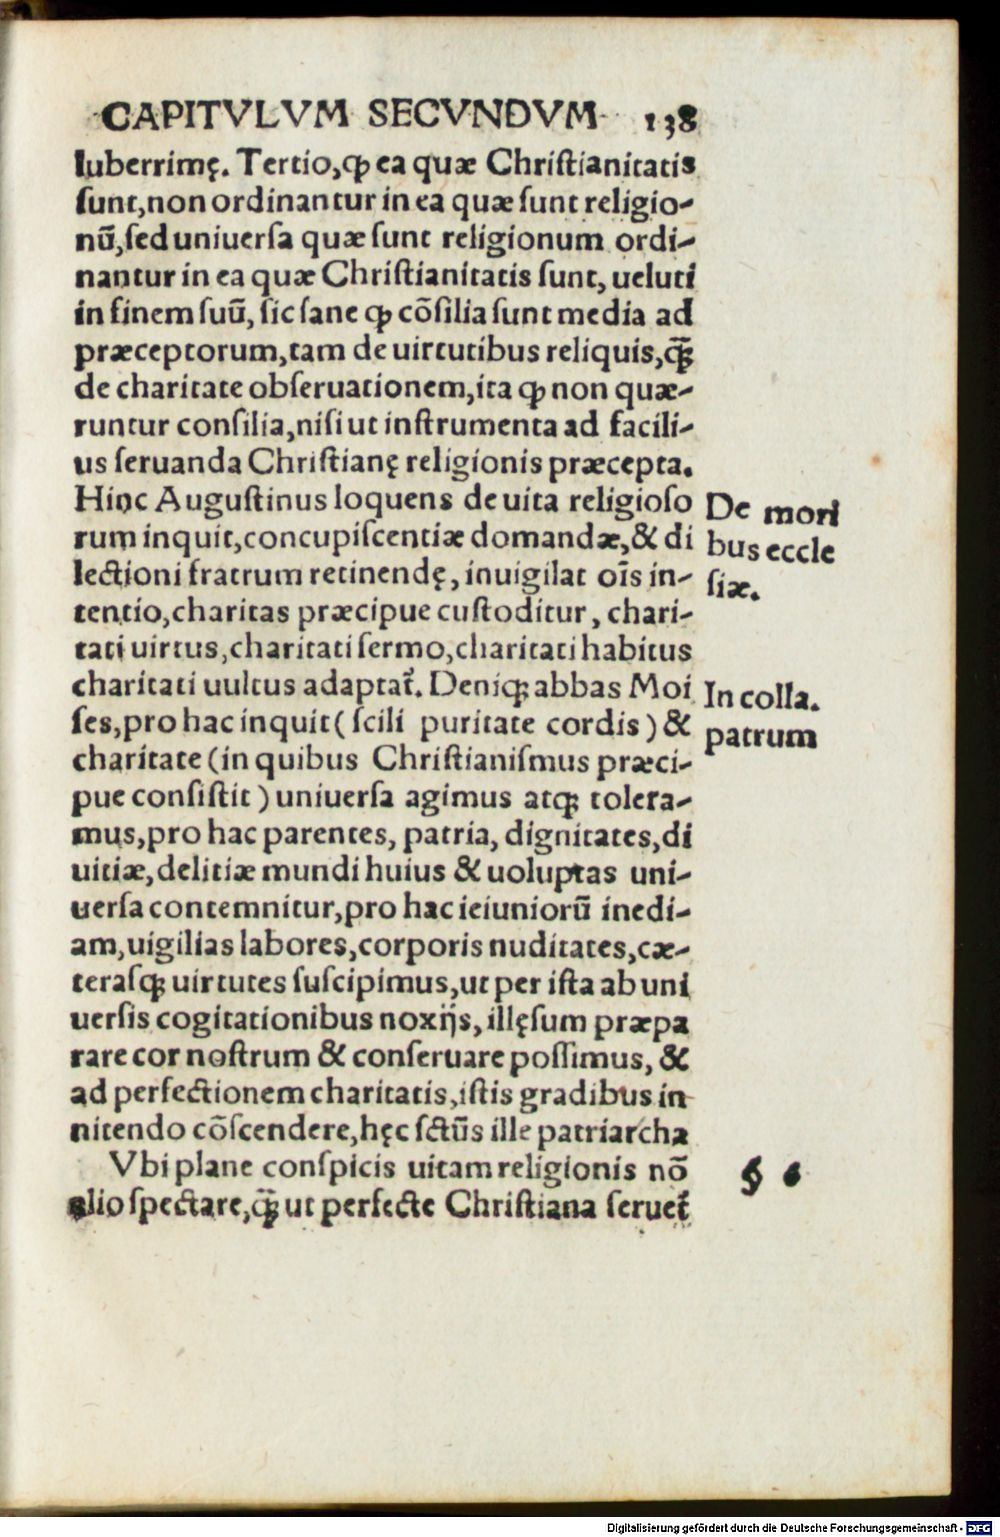 CAPITVLVM SECVNDVM 138
luberrimę. Tertio, ꝙ ea quæ Chriſtianitatis
ſunt, non ordinantur in ea quæ ſunt religio-
nū, ſed uniuerſa quæ ſunt religionum ordi-
nantur in ea quæ Chriſtianitatis ſunt, ueluti
in finem ſuū, ſic ſane ꝙ cōſilia ſunt media ad
præceptorum, tam de uirtutibus reliquis, q̃ꝫ
de charitate obſeruationem, ita ꝙ non quæ-
runtur conſilia, niſi ut inſtrumenta ad facili-
us ſeruanda Chriſtianę religionis præcepta.
Hinc Auguſtinus loquens de uita religioſo
rum inquit, concupiſcentiæ domandæ, & di
lectioni fratrum retinendę, inuigilat oīs in-
tentio, charitas præcipue cuſtoditur, chari-
tati uirtus, charitati ſermo, charitati habitus
charitati uultus adaptat᷑. Deniqꝫ abbas Moi
ſes, pro hac inquit (ſcili puritate cordis) &
charitate (in quibus Chriſtianiſmus præci-
pue conſiſtit) uniuerſa agimus atqꝫ tolera-
mus, pro hac parentes, patria, dignitates, di
uitiæ, delitiæ mundi huius & uoluptas uni-
uerſa contemnitur, pro hac ieiuniorū inedi-
am, uigilias labores, corporis nuditates, cæ-
teraſqꝫ uirtutes ſuſcipimus, ut per iſta ab uni
uerſis cogitationibus noxijs, illęſum præpa
rare cor noſtrum & conſeruare poſſimus, &
ad perfectionem charitatis, iſtis gradibus in
nitendo cōſcendere, hęc ſctūs ille patriarcha
Vbi plane conſpicis uitam religionis nō
alio ſpectare, q̃ꝫ ut perfecte Chriſtiana ſeruet᷑
De mori
bus eccle
ſiæ.
In colla.
patrum
§
Digitalisierung gefördert durch die Deutsche Forschungsgemeinschaft - DFG